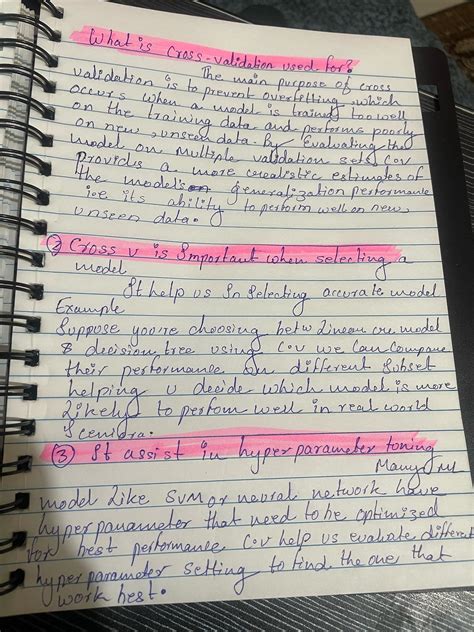 What is Cross-validation used for?
The main purpose of cross
validation is to prevent overfitting, which
occurs when a model is trained too well
on the training data and performs poorly
on new, unseen data. By evaluating the
model on multiple validation sets, C.V
provides a more realistic estimates of
the model's generalization performance
i.e its ability to perform well on new,
unseen data.
② Cross v is Important when selecting a
model
It help us In Selecting accurate model
Example
Suppose you're choosing betw Linear model
& decision tree using C.V we Can Compare
their performance on different Subset
helping u decide which model is more
Likely to perfom well in real world
③ It assist in hyperparameter tuning
Many ML
model Like SVM or neural network have
hyperparameter that need to be optimized
for best performance C.V help us evaluate different
hyperparameter setting to find the one that
work best.